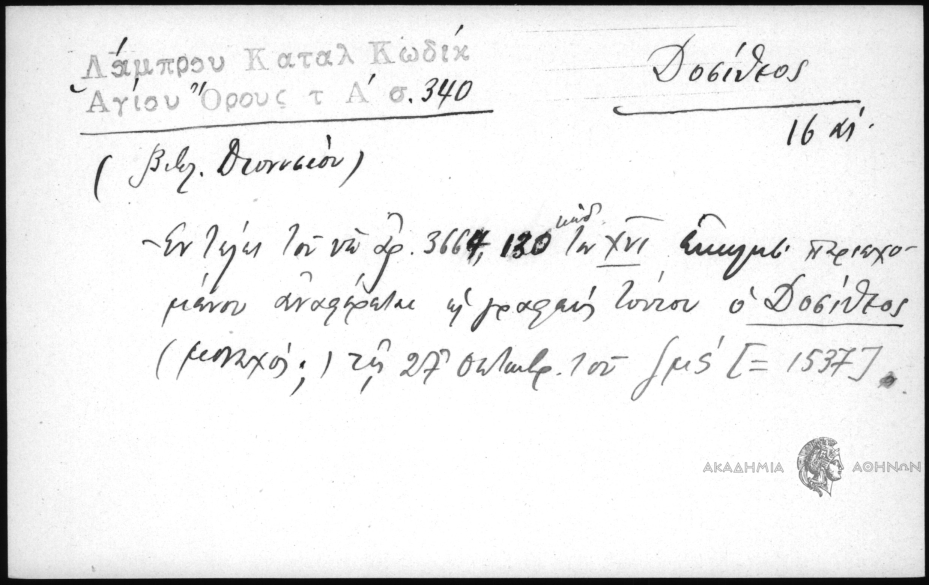 Λάμπρου Καταλ Κωδίκ
Ἁγίου Ὄρους τ Α΄ σ. 340
Δοσίθεος
16 αἰ.
(βιβλ. Διονυσίου)
Ἐν τέλει τοῦ ὑπ' ἀρ. 3664, 130 κώδ.
τοῦ XVI περιεχο-
μένου ἀναφέρεται ὡς γραφεὺς τούτου ὁ Δοσίθεος
(μοναχός;) τῇ 27ῃ ὀκτωβρ. τοῦ ζμς΄ [= 1537].
ΑΚΑΔΗΜΙΑ ΑΘΗΝΩΝ